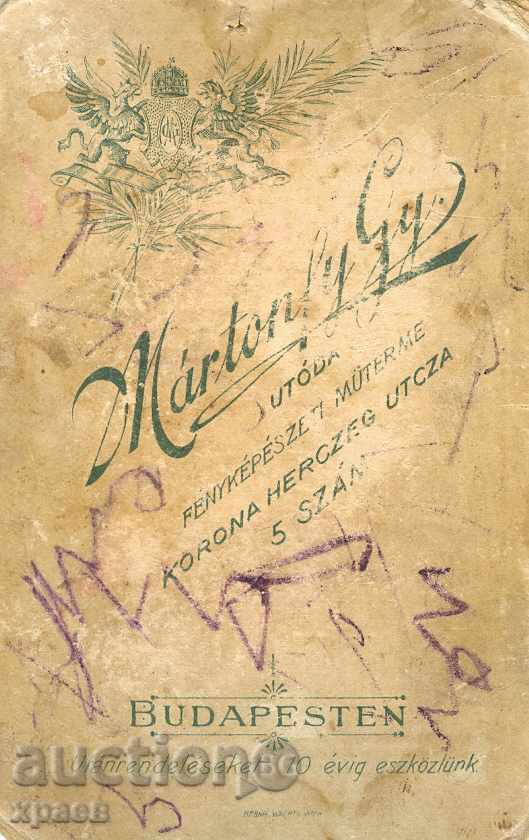 Mártonfy Gy.
UTÓDA
FÉNYKÉPÉSZETI MŰTERME
KORONA HERCZEG UTCZA
5 SZÁM
BUDAPESTEN
Utánrendeléseket 10 évig eszközlünk.
auction
храев